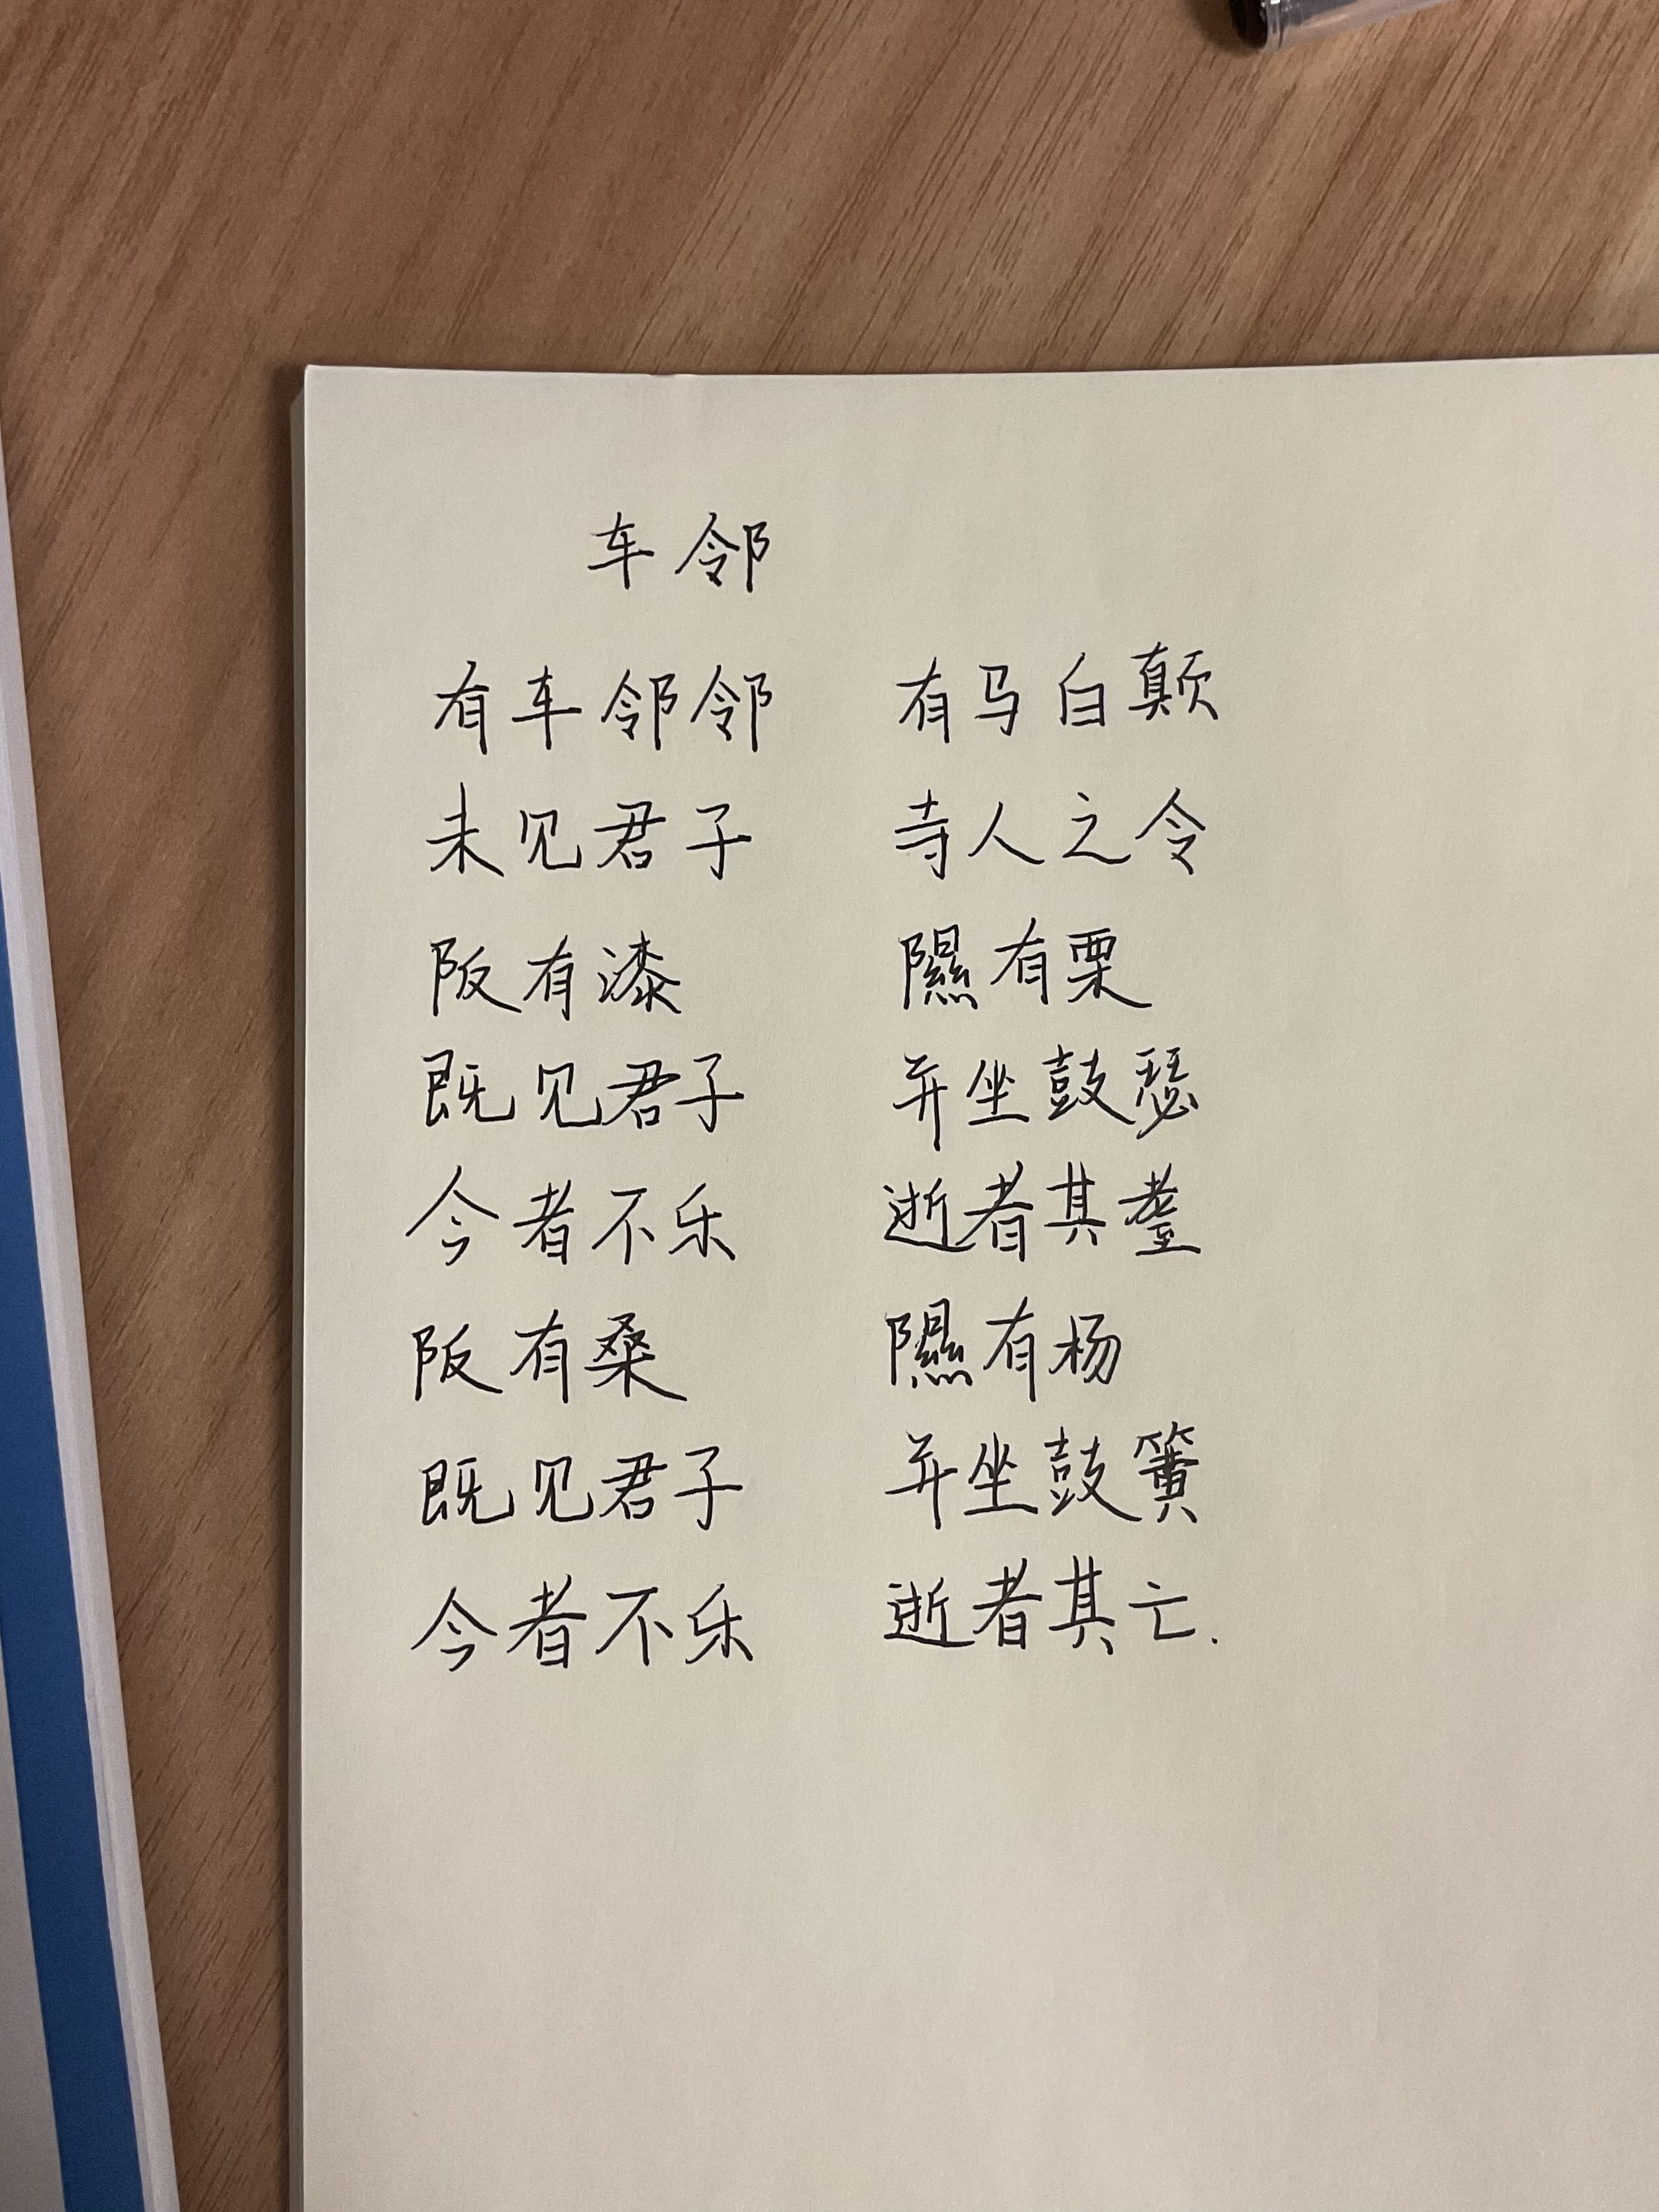 车邻
有车邻邻 有马白颠
未见君子 寺人之令
阪有漆 隰有栗
既见君子 并坐鼓瑟
今者不乐 逝者其耋
阪有桑 隰有杨
既见君子 并坐鼓簧
今者不乐 逝者其亡.